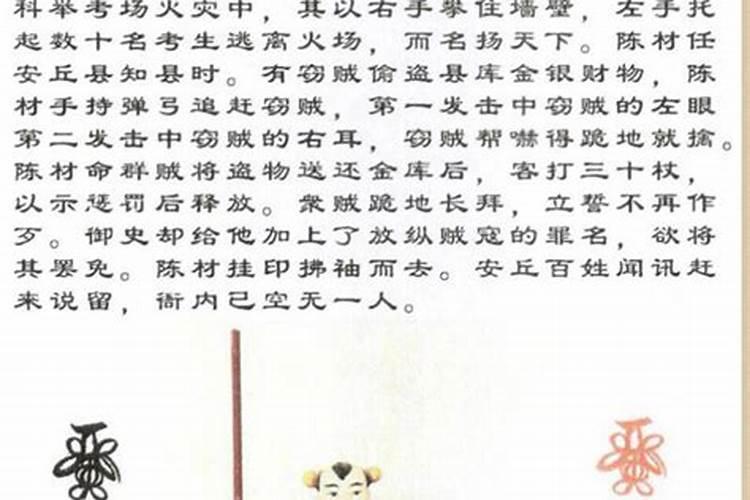 科举考场火灾中，其以右手擎住墙壁，左手托
起数十名考生逃离火场，而名扬天下。陈材任
安丘县知县时。有窃贼偷盗县库金银财物，陈
材手持弹弓追赶窃贼，第一发击中窃贼的左眼
第二发击中窃贼的右耳，窃贼帮嚇得跪地就擒。
陈材命群贼将盗物送还金库后，客打三十杖，
以示惩罚后释放。衆贼跪地长拜，立誓不再作
歹。御史却给他加上了放纵贼寇的罪名，欲将
其罢免。陈材挂印拂袖而去。安丘百姓闻讯赶
来说留，衙内已空无一人。